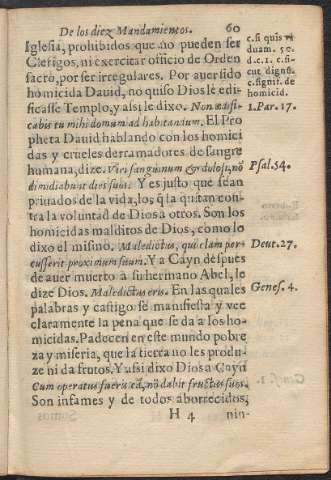 De los diez Mandamientos. 60
Iglesia, prohibidos que no pueden ser
Clerigos, ni exercitar officio de Orden
sacro, por ser irregulares. Por auer sido
homicida Dauid, no quiso Dios le edi-
ficasse Templo, y assi le dixo. Non ædifi-
cabis tu mihi domum ad habitandum. El Pro
pheta Dauid hablando con los homici
das y crueles derramadores de sangre
humana, dize. Viri sanguinum & dolosi, nõ
dimidiabunt dies suos. Y es justo que sean
priuados de la vida, los q̃ la quitan con-
tra la voluntad de Dios a otros. Son los
homicidas malditos de Dios, como lo
dixo el mismo. Maledictus, qui clam per-
cusserit proximum suum. Y a Cayn despues
de auer muerto a su hermano Abel, le
dize Dios. Maledictus eris. En las quales
palabras y castigo se manifiesta y vee
claramente la pena que se da a los ho-
micidas. Padocen en este mundo pobre
za y miseria, que la tierra no les produ-
ze ni da frutos. Y assi dixo Dios a Cayn
Cum operatus fueris eã, nõ dabit fructus suos.
Son infames y de todos aborrecidos,
H 4 nin-
c. si quis vi
duam. 5 c.
d. c. 1. c. si-
cut dignũ.
c. signif. de
homicid.
1. Par. 17.
Psal. 54.
Deut. 27.
Genes. 4.